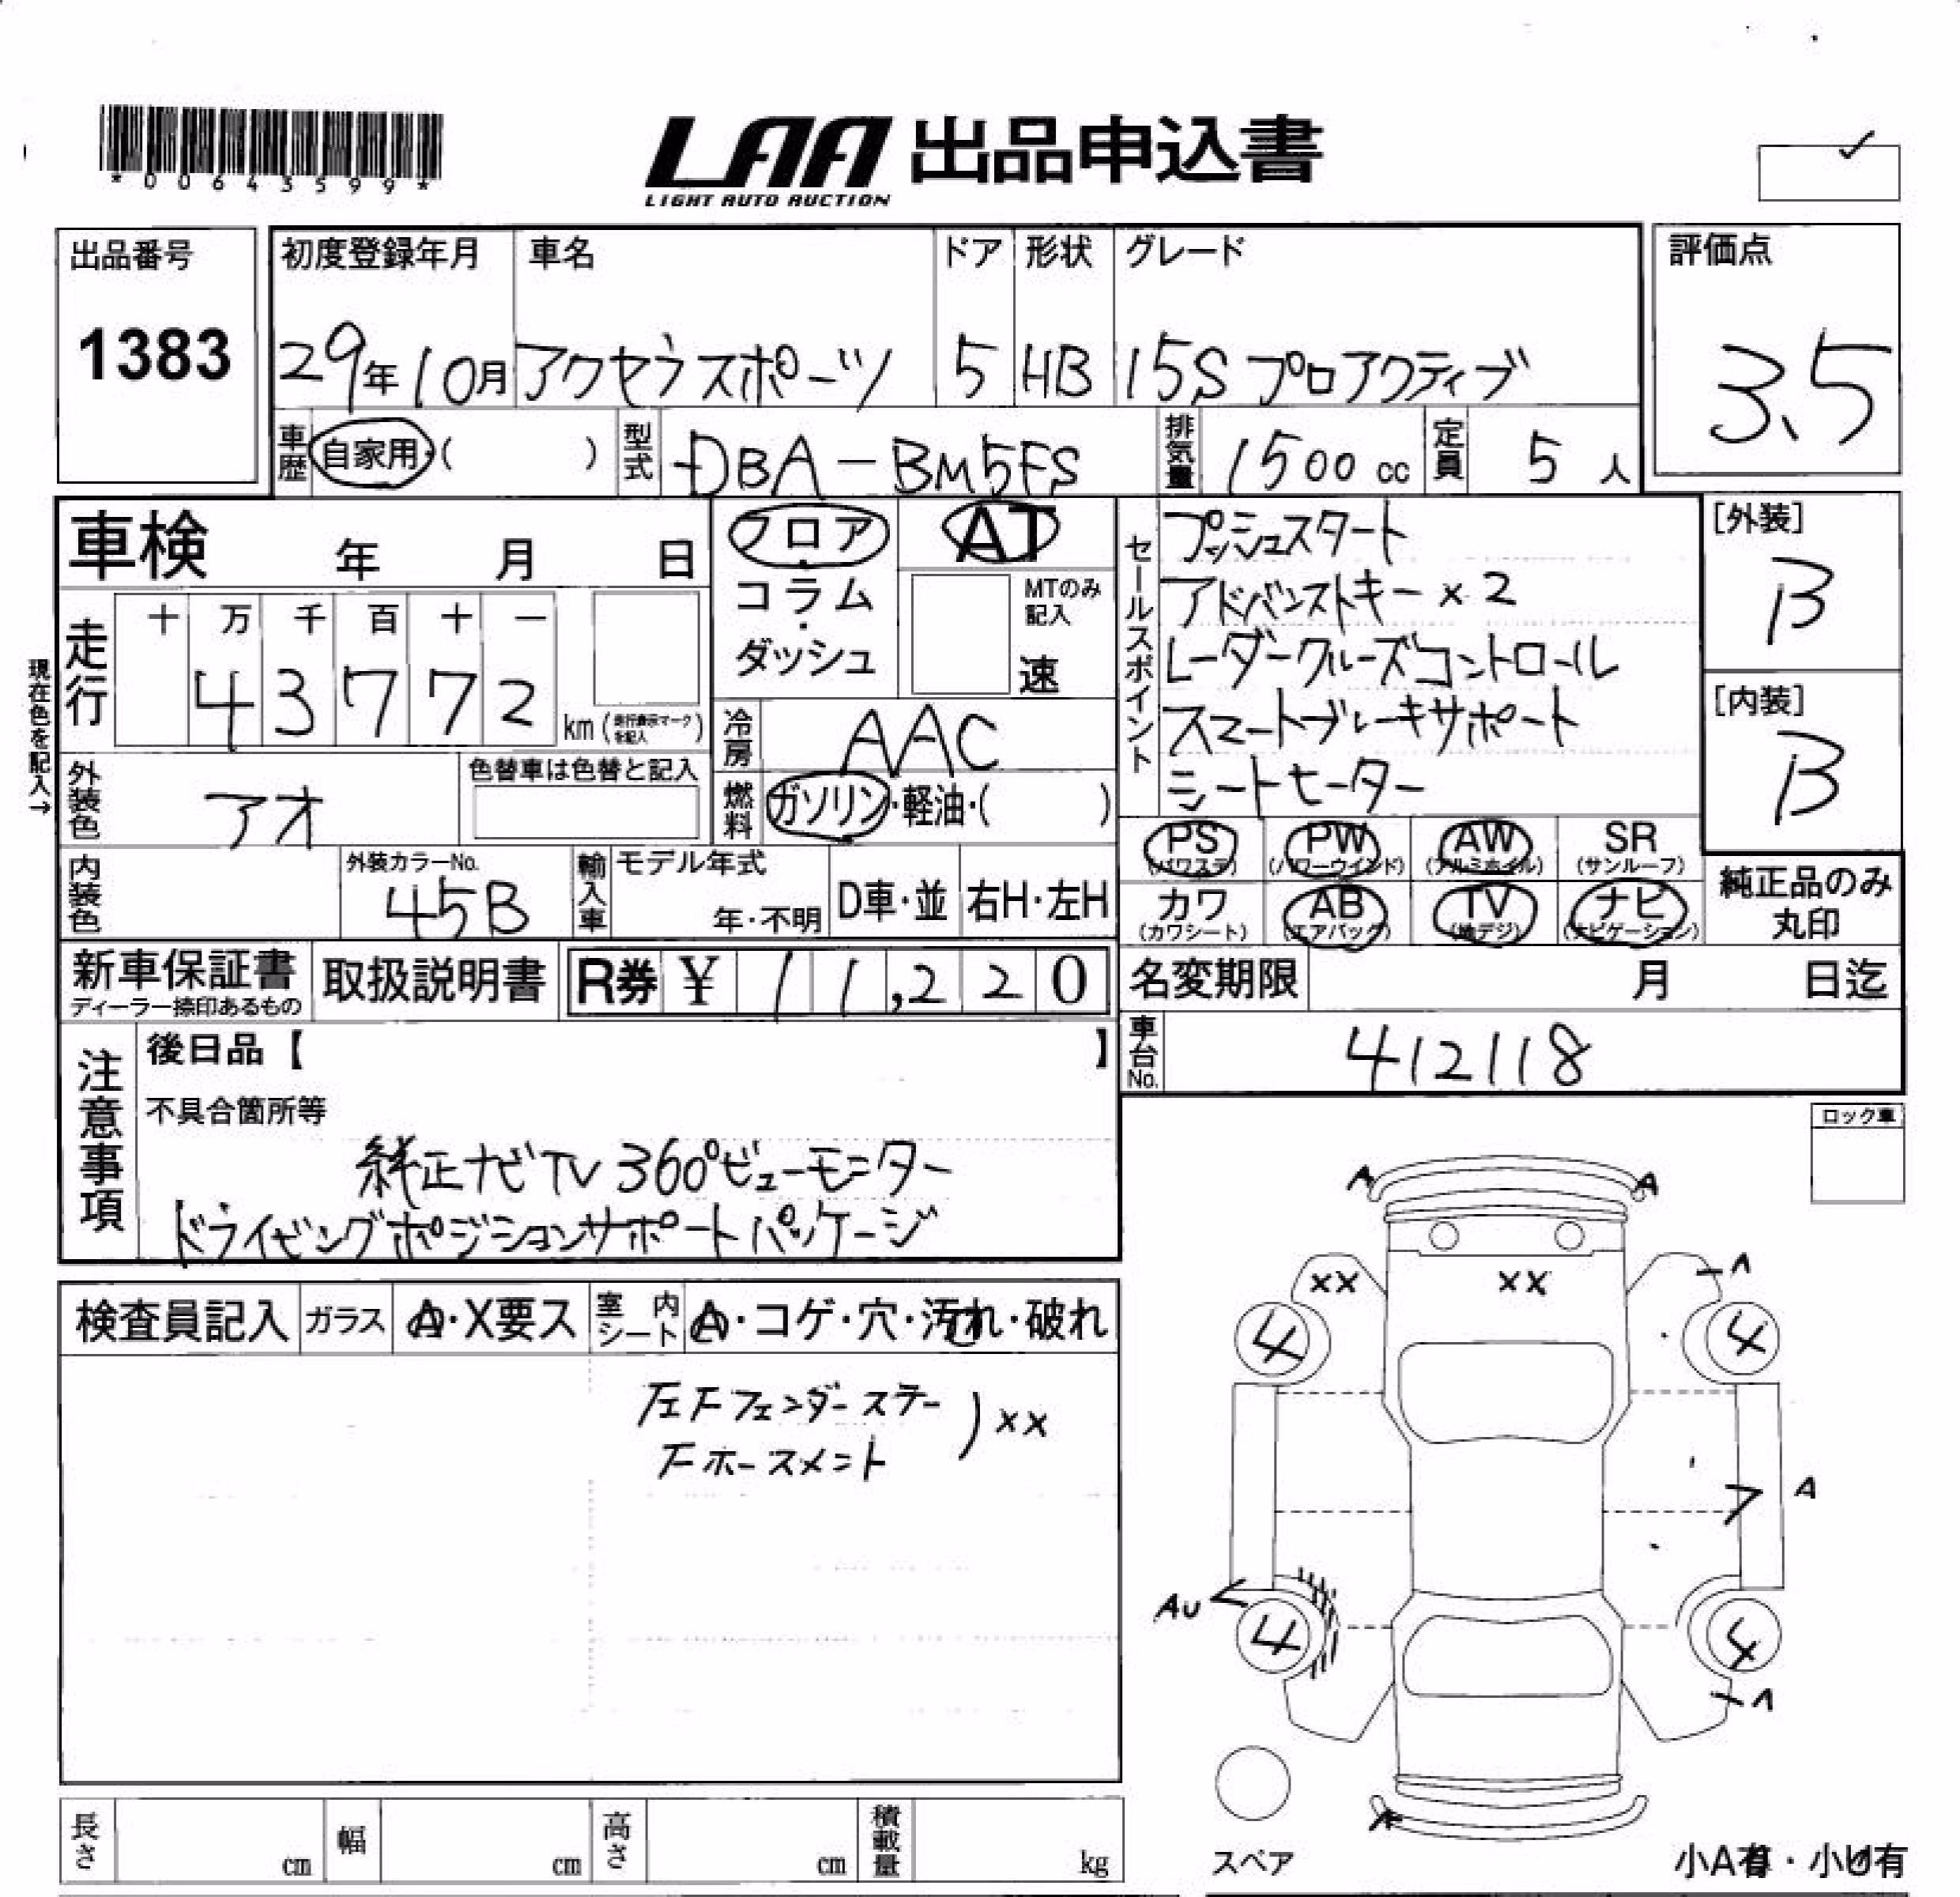 *00643599*
LAA 出品申込書
LIGHT AUTO AUCTION
出品番号
1383
初度登録年月
29年10月
車名
アクセラスポーツ
ドア
5
形状
HB
グレード
15S プロアクティブ
評価点
3.5
車歴
自家用・( )
型式
DBA-BM5FS
排気量
1500 cc
定員
5 人
車検 年 月 日
フロア・
コラム・
ダッシュ
AT
MTのみ記入
速
現在色を記入→
走行
十 万 千 百 十 一
4 3 7 7 2
km (走行表示マークを記入)
冷房
AAC
外装色
アオ
色替車は色替と記入
燃料
ガソリン・軽油・( )
内装色
外装カラーNo.
45B
輸入車
モデル年式
年・不明
D車・並
右H・左H
セールスポイント
プッシュスタート
アドバンストキー×2
レーダークルーズコントロール
スマートブレーキサポート
シートヒーター
[外装]
B
[内装]
B
PS
(パワステ)
PW
(パワーウインド)
AW
(アルミホイル)
SR
(サンルーフ)
カワ
(カワシート)
AB
(エアバッグ)
TV
(地デジ)
ナビ
(ナビゲーション)
純正品のみ
丸印
新車保証書
ディーラー捺印あるもの
取扱説明書
R券 ¥ 11,220
名変期限 月 日迄
車台No.
412118
注意事項
後日品【 】
不具合箇所等
純正ナビTV 360°ビューモニター
ドライビングポジションサポートパッケージ
ロック車
検査員記入
ガラス
A・X要ス
室内シート
A・コゲ・穴・汚れ・破れ
左Fフェンダーステー
Fホースメント
) XX
A
A
XX
XX
A
4
4
A
AU
4
4
A
A
スペア
小A有・小U有
長さ cm
幅 cm
高さ cm
積載量 kg